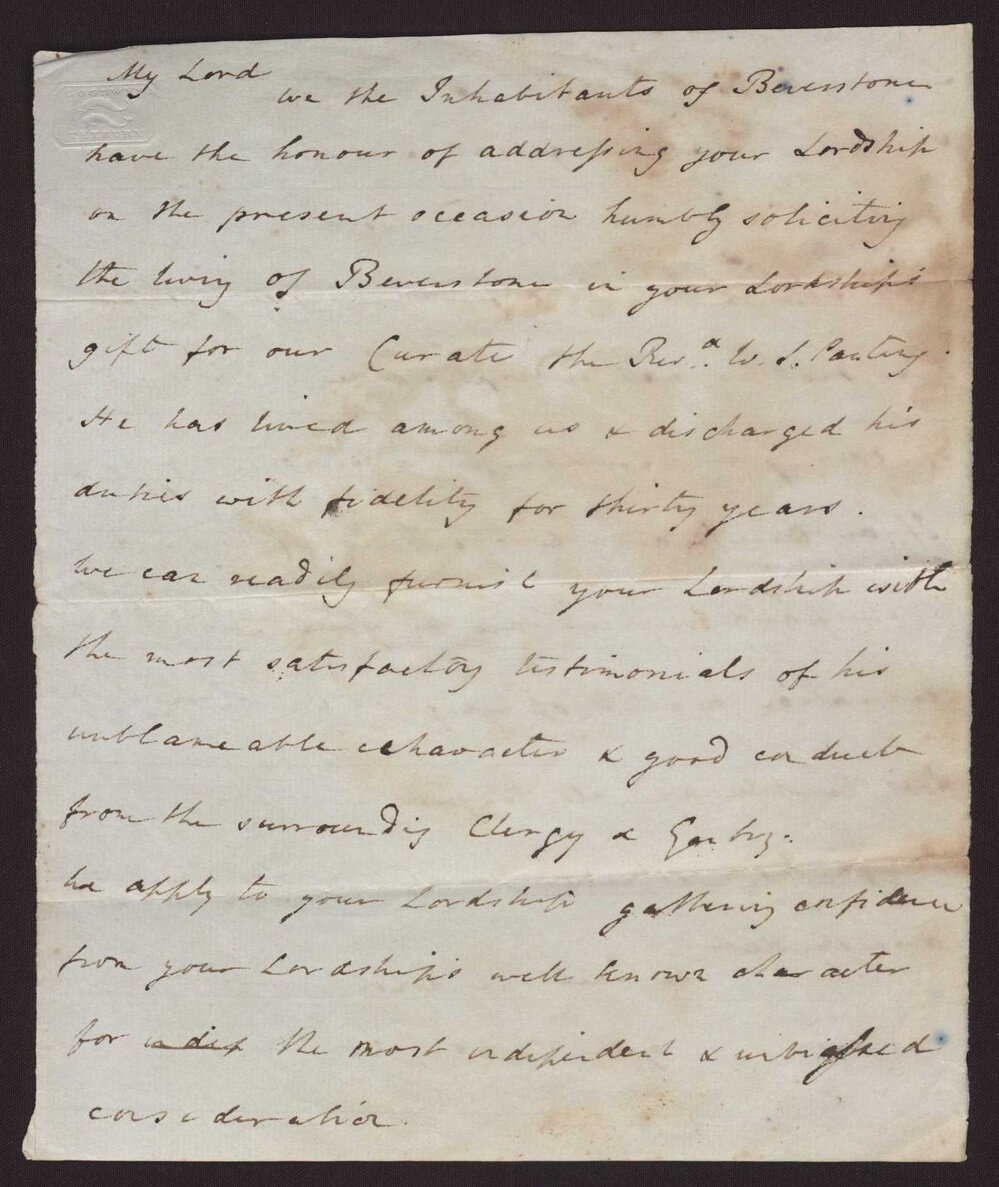 GOODWYN
TETBURY
My Lord
we the Inhabitants of Beverstone
have the honour of addreſsing your Lordship
on the present occasion humbly soliciting
the living of Beverstone in your Lordship's
gift for our Curate the Revd. W. S. Panting.
He has lived among us & discharged his
duties with fidelity for thirty years.
We can readily furnish your Lordship with
the most satisfactory testimonials of his
unblameable character & good conduct
from the surrounding Clergy & Gentry.
We apply to your Lordship gathering confidence
from your Lordship's well known character
for the most independent & unbiaſsed
consideration.